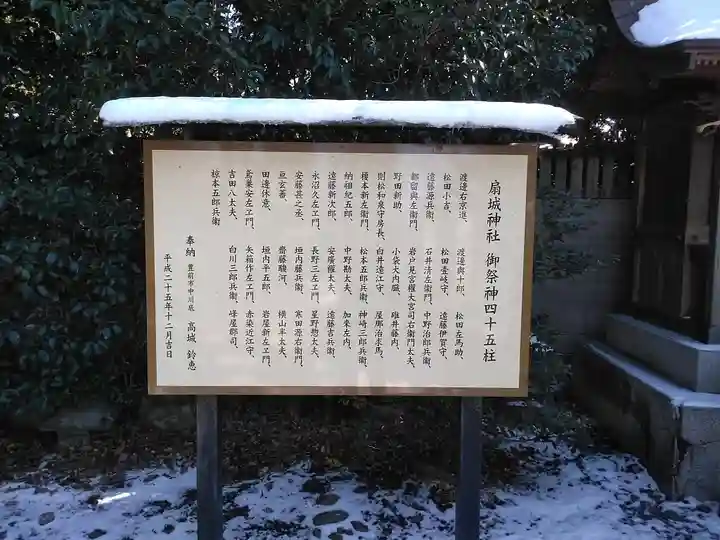 扇城神社 御祭神四十五柱
渡邊右京進、 渡邊與十郎、 松田左馬助、
松田小吉、 松田壹岐守、 遠藤伊賀守、
遠藤源兵衛、 石井清左衛門、 中野治郎兵衛、
都留與左衛門、 岩戸見宮權大宮司右衛門太夫、
野田新助、 小袋大内蔵、 碓井藤内、
則松和泉守房長、 白井遠江守、 屋那治求馬、
榎本新左衛門、 松本五郎兵衛、 神崎三郎兵衛、
納祖紀五郎、 中野勘太夫、 加来左内、
遠藤新次郎、 安廣權太夫、 遠藤吉兵衛、
永沼久左エ門、 長野三左エ門、 星野惣太夫、
安藤甚之丞、 垣内藤兵衛、 寒田源右衛門、
亘玄蕃、 齋藤駿河、 横山半太夫、
田邊休意、 垣内平五郎、 岩屋新左エ門、
鴛葉安左エ門、 矢箱作左エ門、 赤染近江守、
吉田八太夫、 白川三郎兵衛、 峰屋郡司、
椋本五郎兵衛
奉納 豊前市中川底 高城 鈴恵
平成二十五年十二月吉日